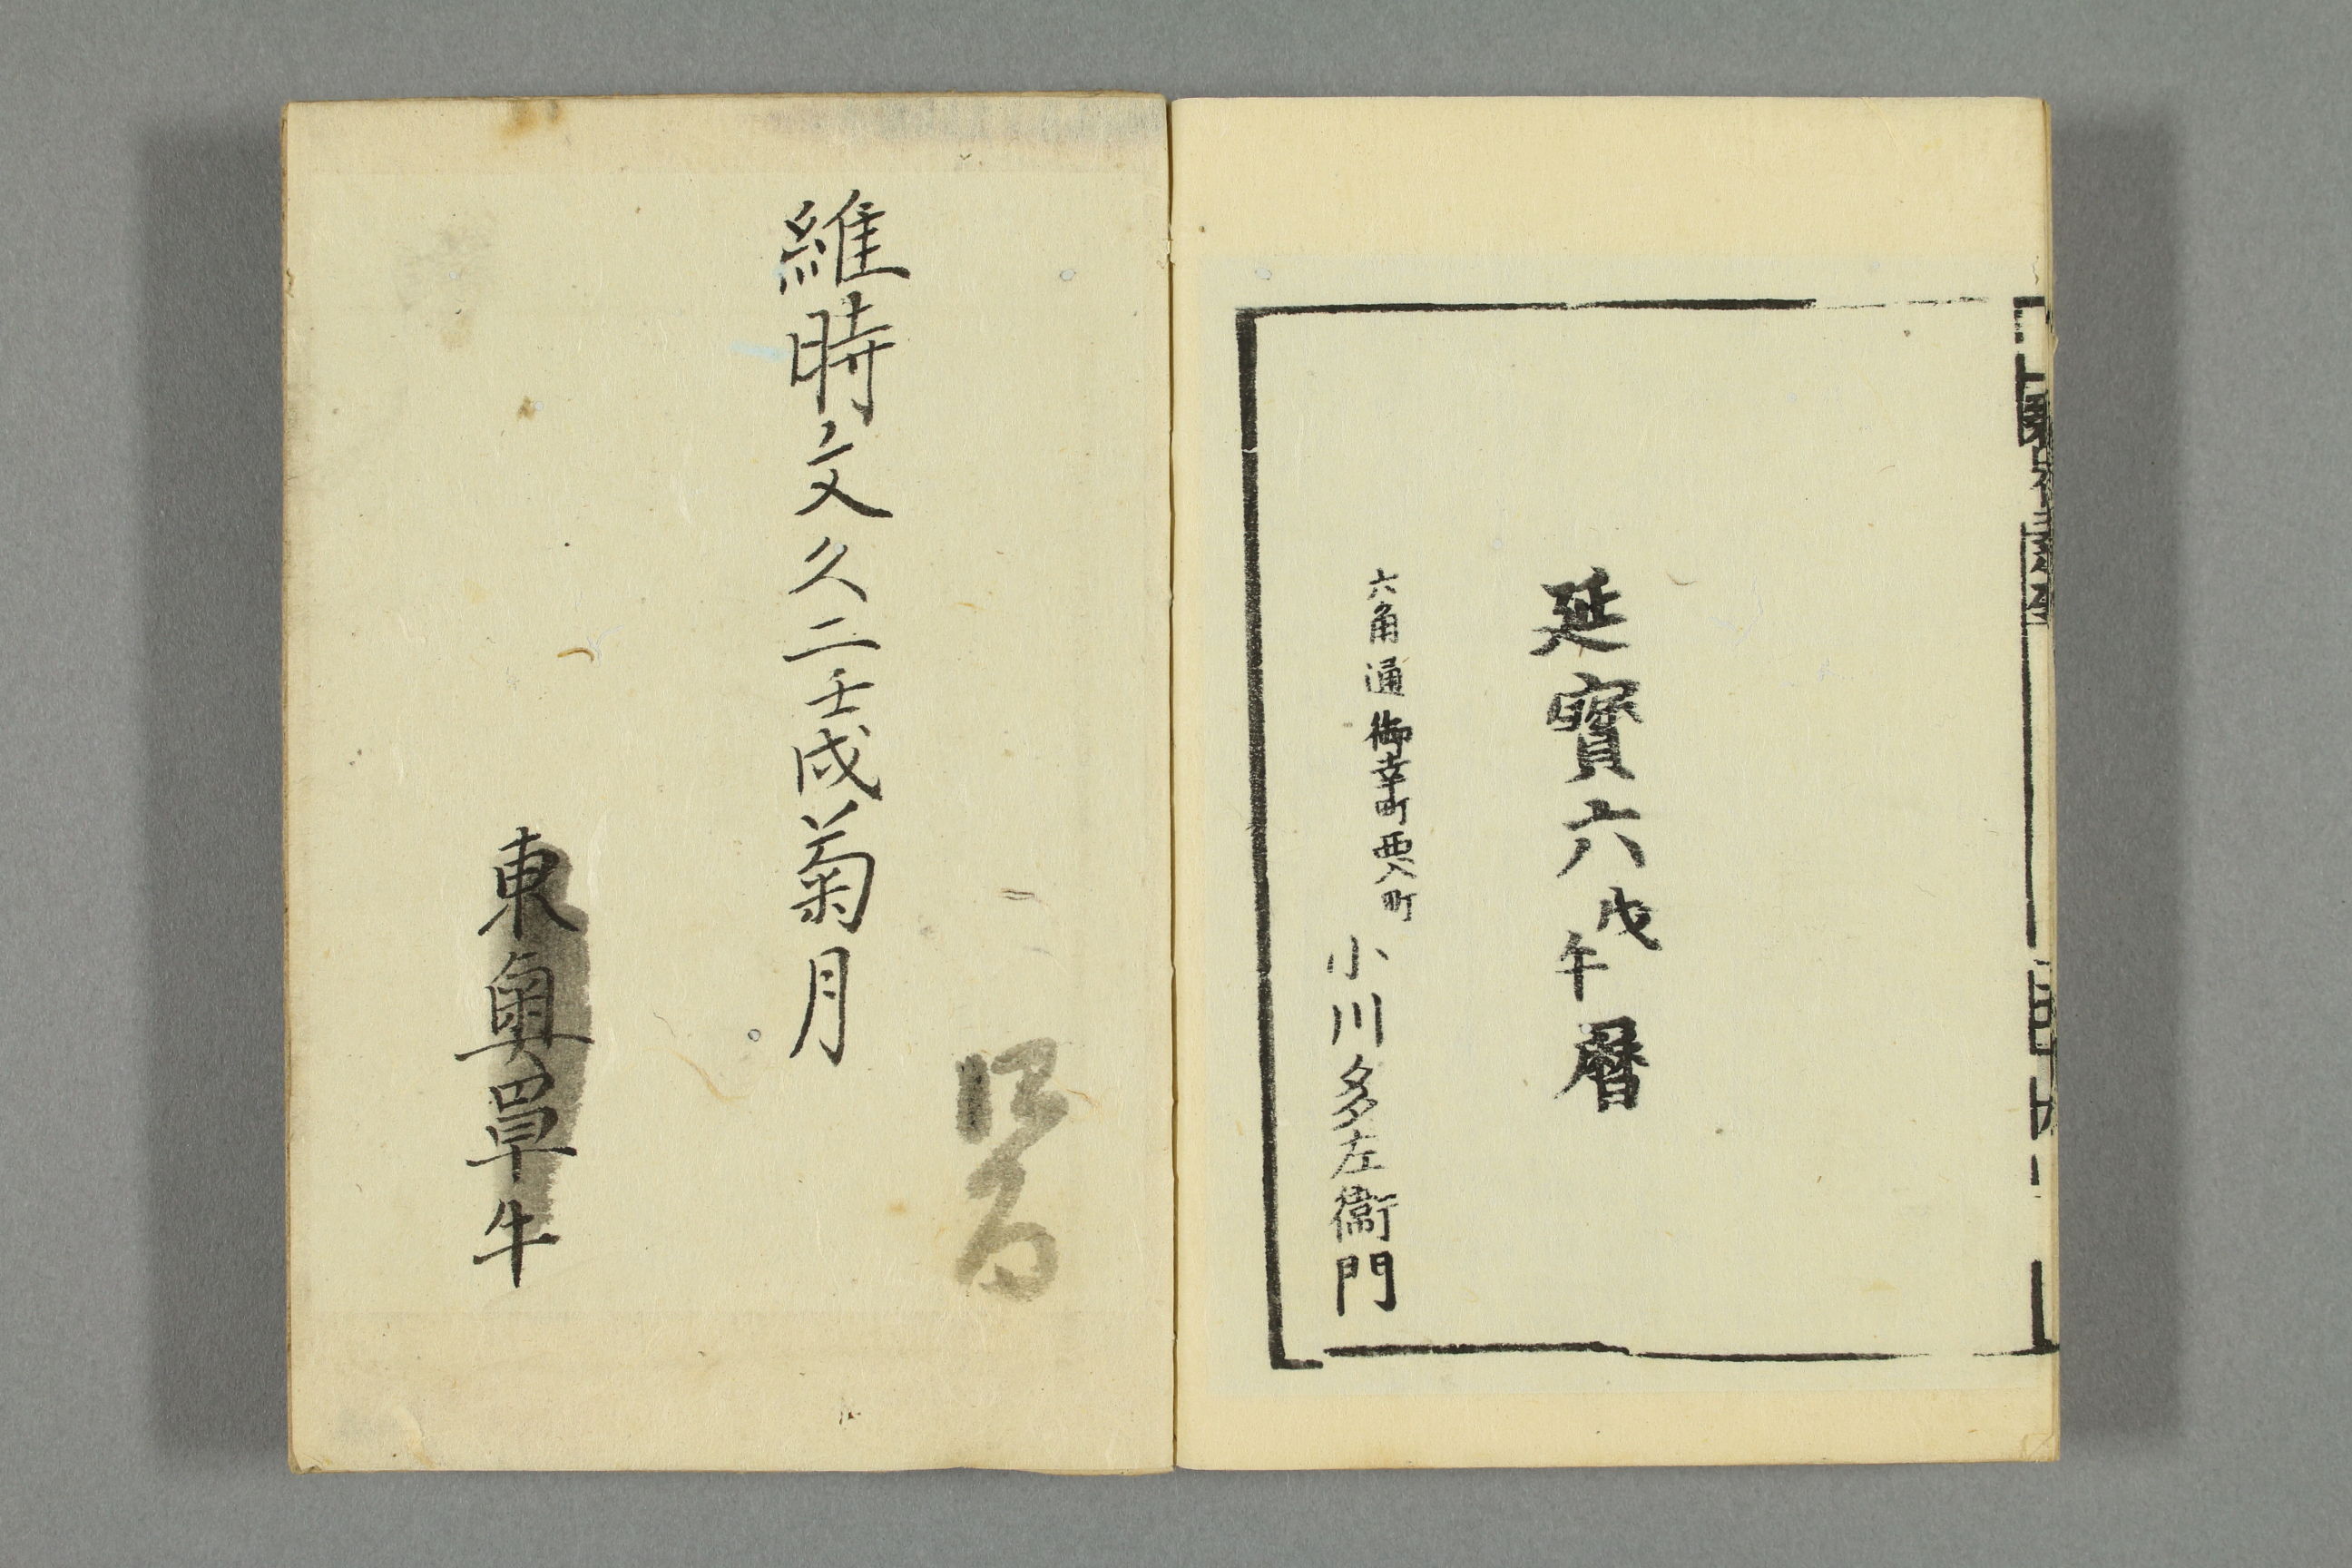 延寶六戊午曆
六角通御幸町西入町
小川多左衛門
維時文久二壬戌菊月
東奥覃牛